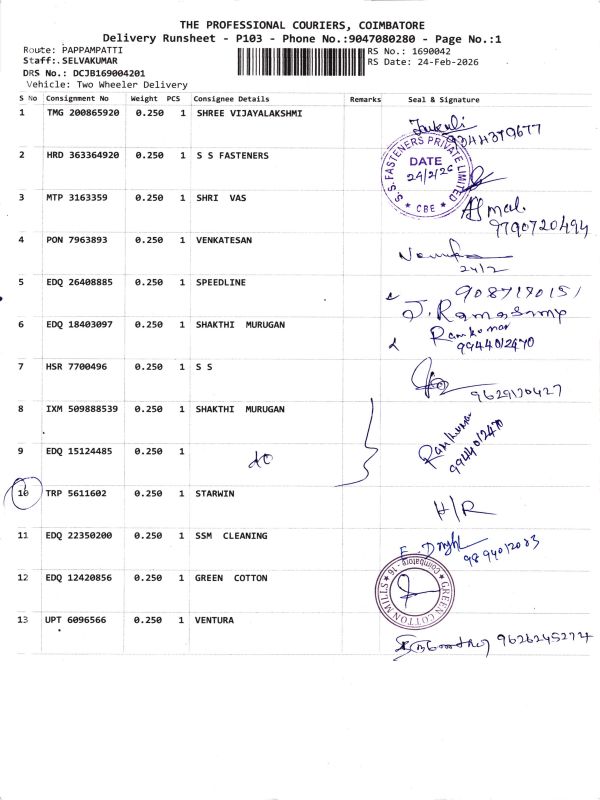 THE PROFESSIONAL COURIERS, COIMBATORE
Delivery Runsheet - P103 - Phone No.:9047080280 - Page No.:1
Route: PAPPAMPATTI
Staff:.SELVAKUMAR
DRS No.: DCJB169004201
Vehicle: Two Wheeler Delivery
RS No.: 1690042
RS Date: 24-Feb-2026
S No Consignment No Weight PCS Consignee Details Remarks Seal & Signature
1 TMG 200865920 0.250 1 SHREE VIJAYALAKSHMI
2 HRD 363364920 0.250 1 S S FASTENERS
S. S. FASTENERS PRIVATE LIMITED
DATE
24/2/26
★ CBE ★
3 MTP 3163359 0.250 1 SHRI VAS
9790720494
4 PON 7963893 0.250 1 VENKATESAN
24/2
5 EDQ 26408885 0.250 1 SPEEDLINE
J. Ramasamy
6 EDQ 18403097 0.250 1 SHAKTHI MURUGAN
Ramkumar
9944012470
7 HSR 7700496 0.250 1 S S
9629120427
8 IXM 509888539 0.250 1 SHAKTHI MURUGAN
Ramkumar
9944012470
9 EDQ 15124485 0.250 1 do
10 TRP 5611602 0.250 1 STARWIN
H/R
11 EDQ 22350200 0.250 1 SSM CLEANING
12 EDQ 12420856 0.250 1 GREEN COTTON
★ GREEN COTTON MILLS ★
Coimbatore - 16
13 UPT 6096566 0.250 1 VENTURA